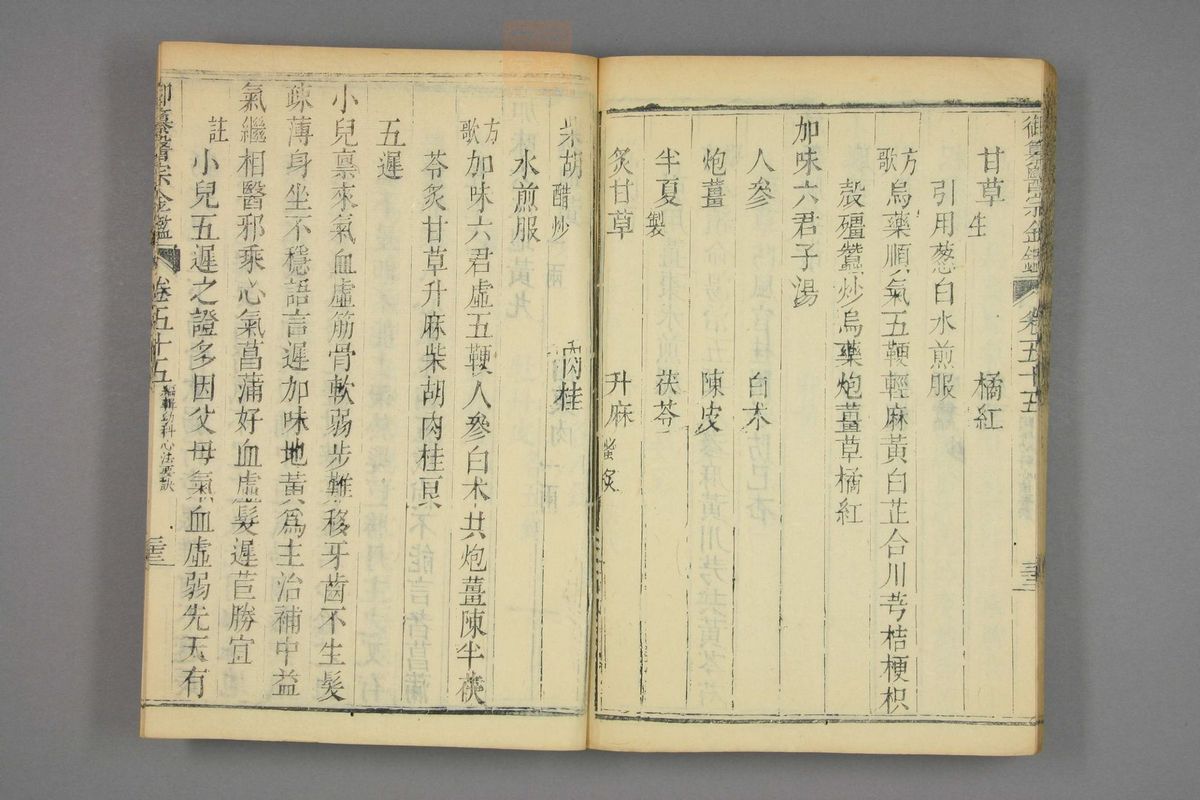 御纂醫宗金鑑 卷五十五 三三
甘草生 橘紅
引用葱白水煎服
方歌 烏藥順氣五鞕輕麻黃白芷合川芎桔梗枳
殼殭蠶炒烏藥炮薑草橘紅
加味六君子湯
人參 白朮
炮薑 陳皮
半夏製 茯苓
炙甘草 升麻蜜炙
柴胡醋炒 肉桂
水煎服
方歌 加味六君虛五鞕人參白朮共炮薑陳半茯
苓炙甘草升麻柴胡肉桂
五遲
小兒禀來氣血虛筋骨軟弱步難移牙齒不生髮
疎薄身坐不穩語言遲加味地黃爲主治補中益
氣繼相醫邪乘心氣菖蒲好血虛髮遲苣勝宜
註 小兒五遲之證多因父母氣血虛弱先天有
御纂醫宗金鑑 卷五十五 編輯幼科心法要訣 三三